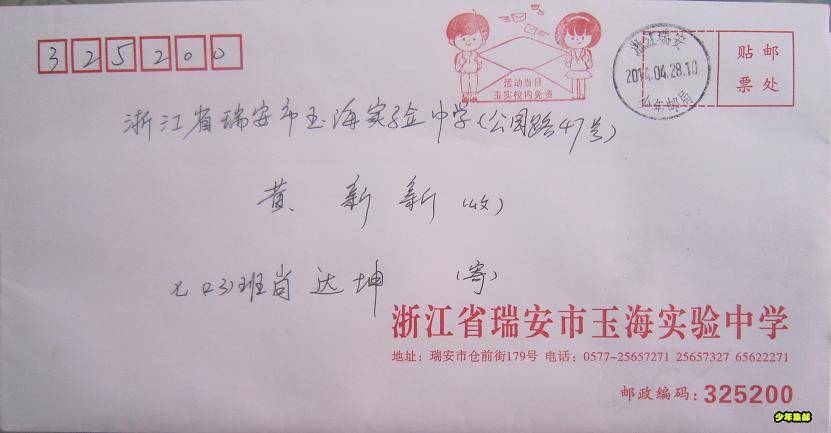 325200
活动当日
玉实校内免资
浙江瑞安
2014.04.28.10
少年邮局
贴邮
票处
浙江省瑞安市玉海实验中学(公园路47号)
黄新新(收)
七(3)班肖达坤(寄)
浙江省瑞安市玉海实验中学
地址：瑞安市仓前街179号 电话：0577-25657271 25657327 65622271
邮政编码：325200
少年集邮